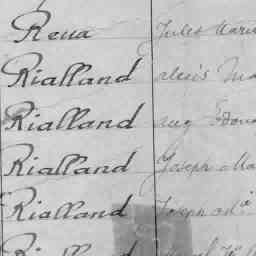 Reua Jules Marie
Rialland Alexis Ma
Rialland Aug Edoua
Rialland Joseph Ma
Rialland Joseph
Rialland